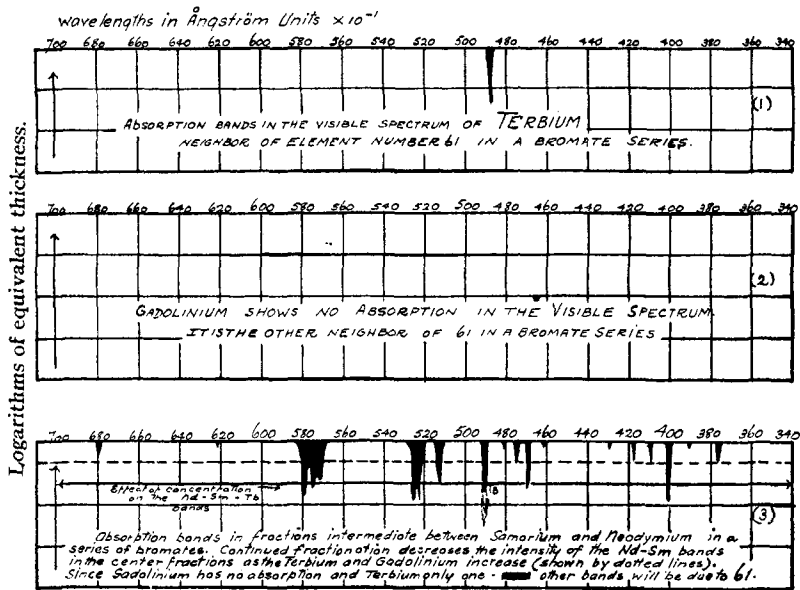 wavelengths in Ångström Units ×10⁻¹
700 680 660 640 620 600 580 560 540 520 500 480 460 440 420 400 380 360 340
(1)
ABSORPTION BANDS IN THE VISIBLE SPECTRUM OF TERBIUM
NEIGHBOR OF ELEMENT NUMBER 61 IN A BROMATE SERIES.
Logarithms of equivalent thickness.
700 680 660 640 620 600 580 560 540 520 500 480 460 440 420 400 380 360 340
(2)
GADOLINIUM SHOWS NO ABSORPTION IN THE VISIBLE SPECTRUM.
IT IS THE OTHER NEIGHBOR OF 61 IN A BROMATE SERIES
700 680 660 640 620 600 580 560 540 520 500 480 460 440 420 400 380 360 340
Effect of concentration
on the Nd-Sm-Tb
bands
TB
(3)
Absorption bands in fractions intermediate between Samarium and Neodymium in a
series of bromates. Continued fractionation decreases the intensity of the Nd-Sm bands
in the center fractions as the Terbium and Gadolinium increase (shown by dotted lines).
Since Gadolinium has no absorption and Terbium only one - other bands will be due to 61.